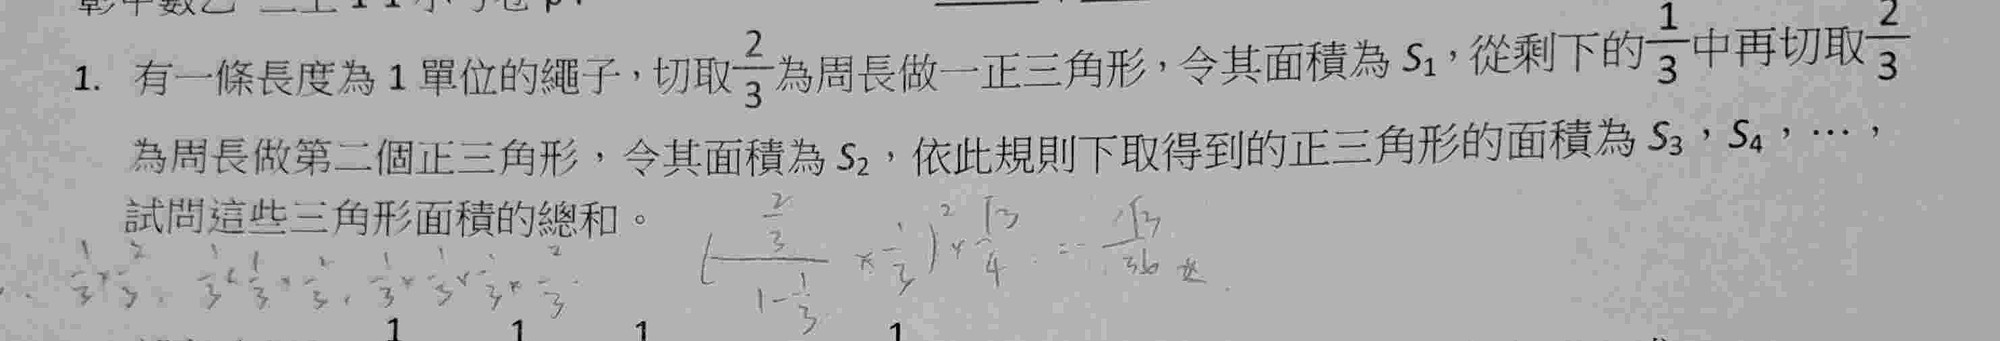 1. 有一條長度為 1 單位的繩子，切取 2/3 為周長做一正三角形，令其面積為 S₁，從剩下的 1/3 中再切取 2/3
為周長做第二個正三角形，令其面積為 S₂，依此規則下取得到的正三角形的面積為 S₃，S₄，⋯，
試問這些三角形面積的總和。
(2/3 / (1-1/3) × 1/3)² × √3/4 = √3/36
1/3 × 2/3, 1/3 × 1/3 × 2/3, 1/3 × 1/3 × 1/3 × 2/3